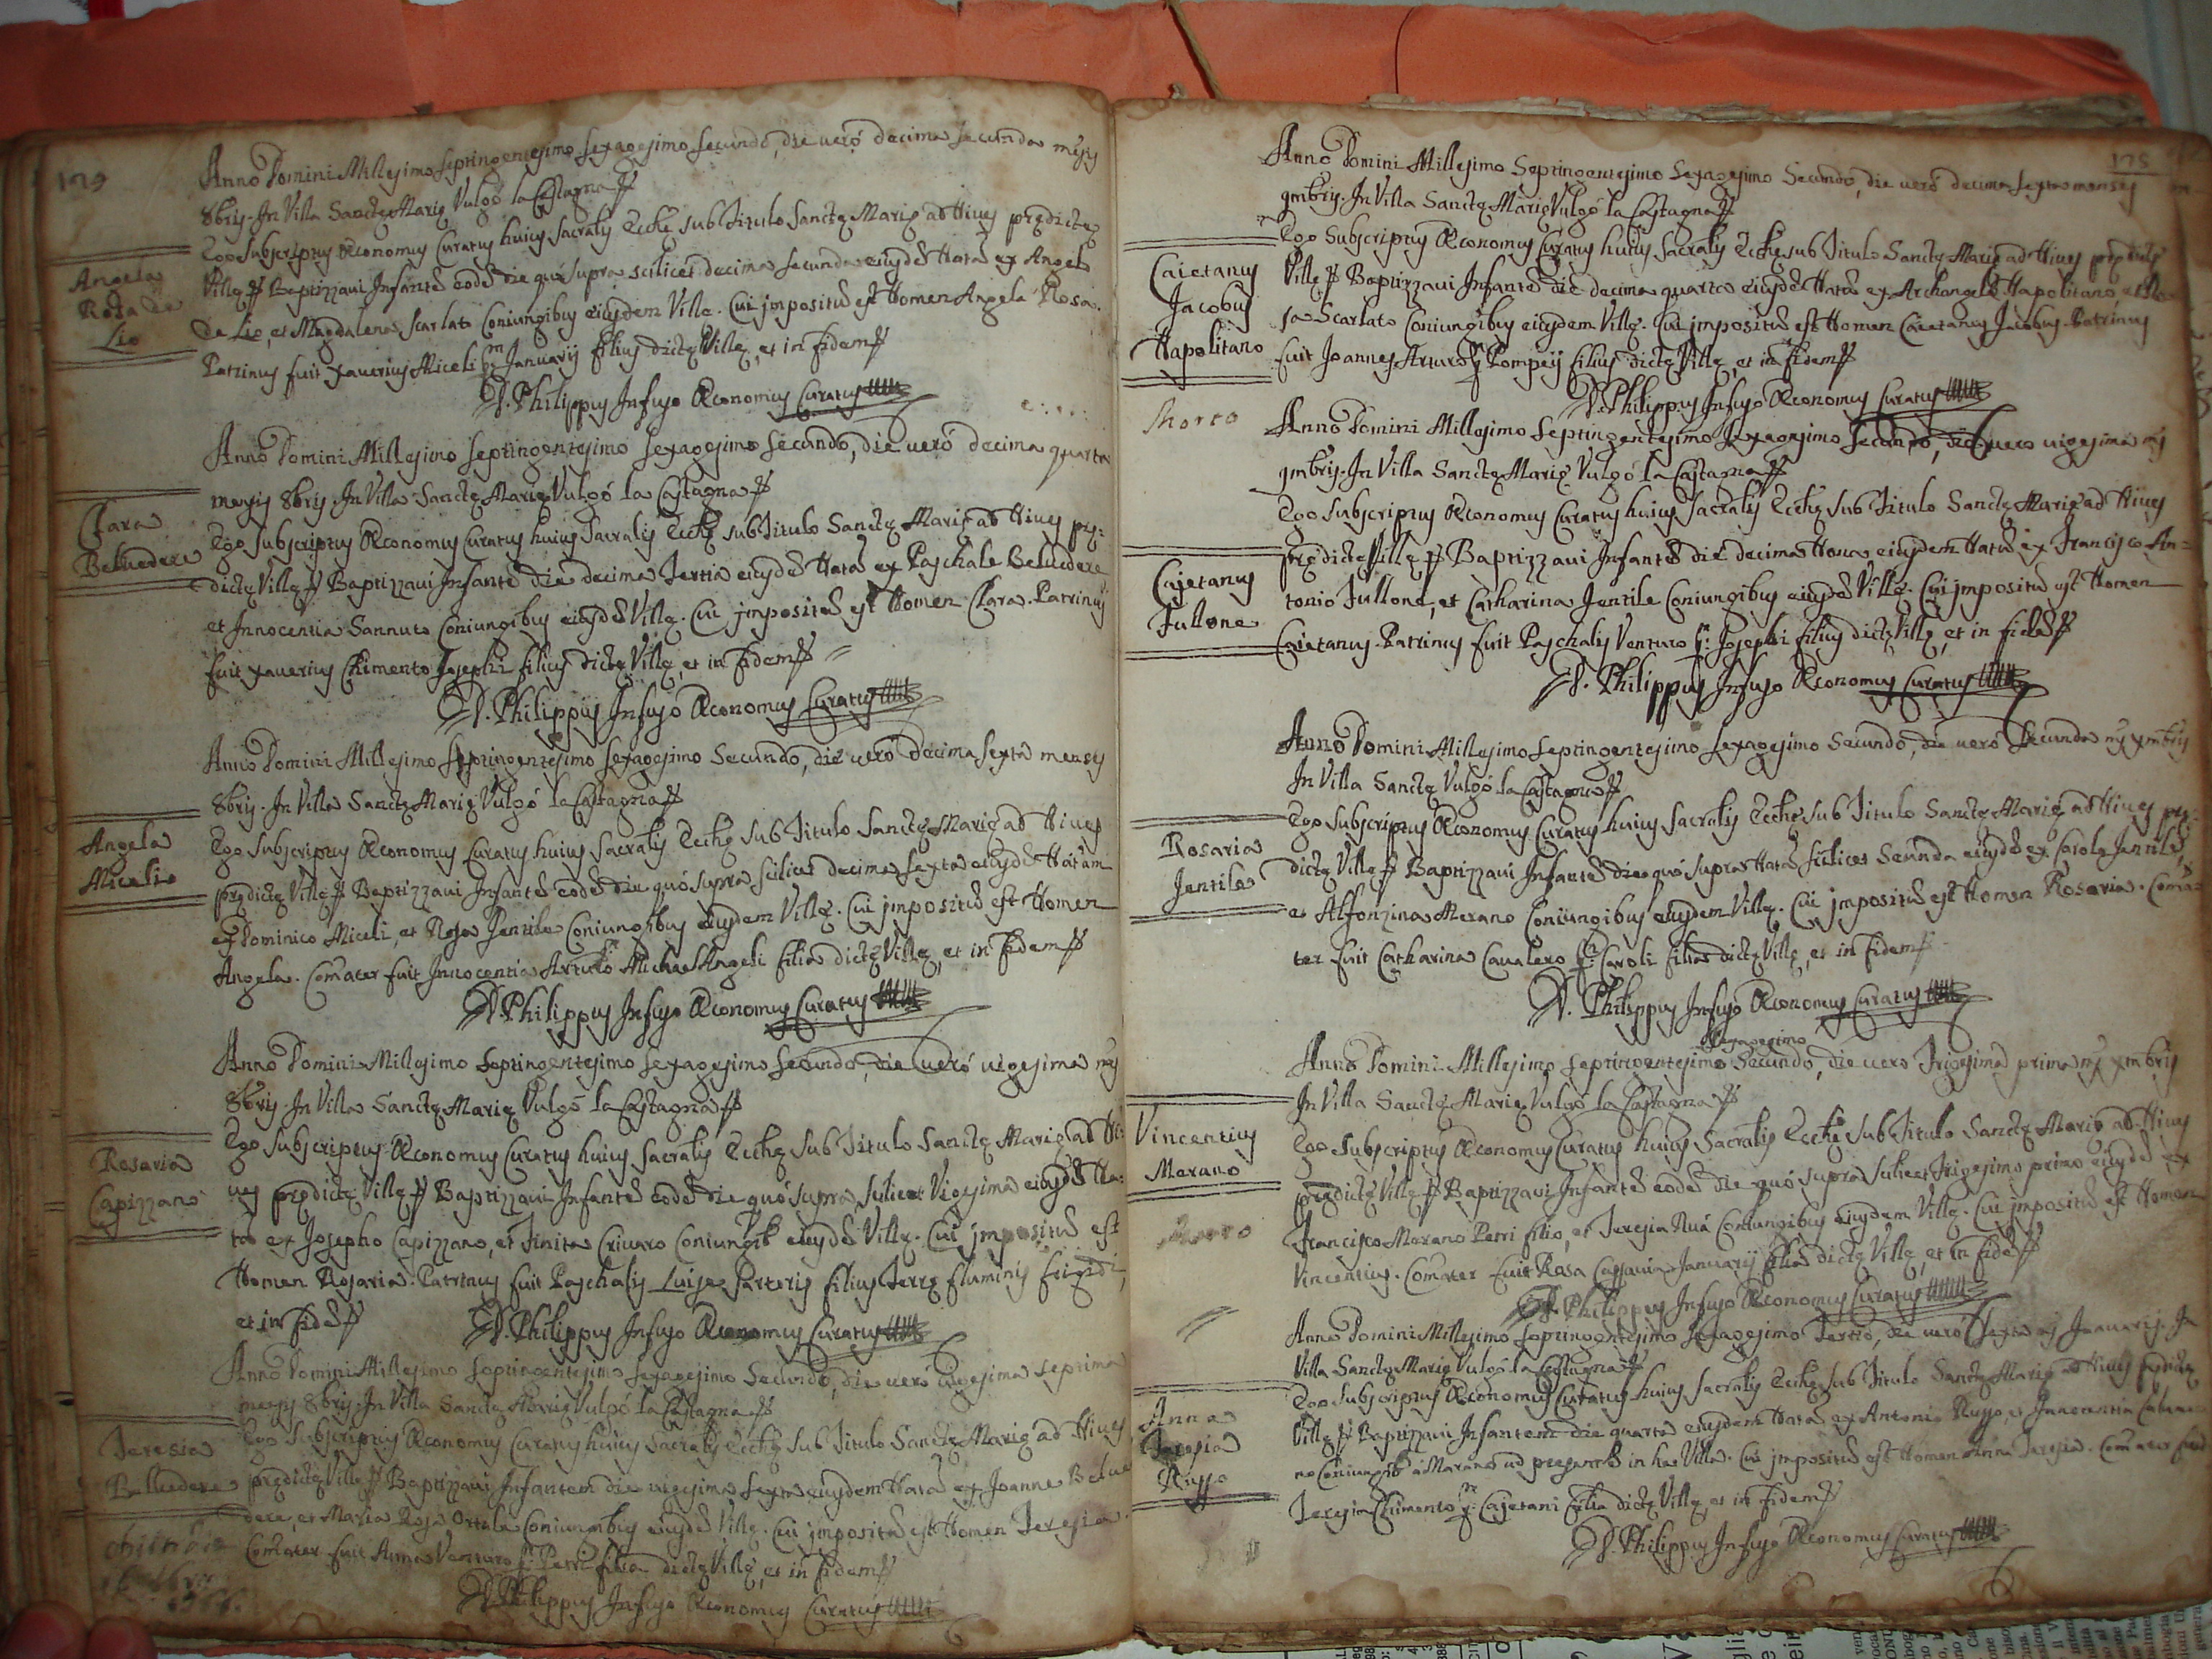 179
Anno Domini Millesimo Septingentesimo Sexagesimo Secundo, die verò decima secunda mēsis
8bris. In Villa Sanctę Marię Vulgò la Castagna
Ego Subscriptus Œconomus Curatus huius Sacralis Eccłię sub Titulo Sanctę Marię ad Nives prędictę
Angela
Rosa de
Lio
Villę Baptizzavi Infantē eodē die quò supra scilicet decima secunda eiusdē Natā ex Angelo
de Lio, et Magdalena Scarlato Coniungibus eiusdem Villę. Cui impositū est Nomen Angela Rosa.
Patrinus fuit Xaverius Miceli qm Januarij filius dictę Villę, et in fidem
D. Philippus Infuso Œconomus Curatus
Anno Domini Millesimo Septingentesimo Sexagesimo Secundo, die verò decima quarta
mensis 8bris. In Villa Sanctę Marię Vulgò la Castagna
Clara
Belvedere
Ego Subscriptus Œconomus Curatus huius Sacralis Eccłię sub Titulo Sanctę Marię ad Nives prę:
dictę Villę Baptizzavi Infantē die decima Tertia eiusdē Natā ex Paschale Belvedere
et Innocentia Sannuto Coniungibus eiusdē Villę. Cui impositū est Nomen Clara. Patrinus
fuit Xaverius Chimento Josephi filius dictę Villę, et in fidem
D. Philippus Infuso Œconomus Curatus
Anno Domini Millesimo Septingentesimo Sexagesimo Secundo, die verò decima Sexta mensis
8bris. In Villa Sanctę Marię Vulgò la Castagna
Angela
Miceli
Ego Subscriptus Œconomus Curatus huius Sacralis Eccłię sub Titulo Sanctę Marię ad Nives
prędictę Villę Baptizzavi Infantē eodē die quò supra scilicet decima Sexta eiusdē Natam
ex Dominico Miceli, et Rosa Jentile Coniungibus eiusdem Villę. Cui impositū est Nomen
Angela. Com̄ater fuit Innocentia Arturo Michael Angeli filia dictę Villę, et in fidem
D. Philippus Infuso Œconomus Curatus
Anno Domini Millesimo Septingentesimo Sexagesimo Secundo, die verò vigesima mēs
8bris. In Villa Sanctę Marię Vulgò la Castagna
Rosaria
Capizzano
Ego Subscriptus Œconomus Curatus huius Sacralis Eccłię sub Titulo Sanctę Marię ad Ni:
ves prędictę Villę Baptizzavi Infantē eodē die quò supra scilicet Vigesima eiusdē Na:
tā ex Josepho Capizzano, et Trinita Crivaro Coniungib eiusdē Villę. Cui impositū est
Nomen Rosaria. Patrinus fuit Paschalis filius Terrę Fluminis Frigidi,
et in fidē D. Philippus Infuso Œconomus Curatus
Anno Domini Millesimo Septingentesimo Sexagesimo Secundo, die verò vigesima septima
mensis 8bris. In Villa Sanctę Marię Vulgò la Castagna
Teresia
Belvedere
Ego Subscriptus Œconomus Curatus huius Sacralis Eccłię sub Titulo Sanctę Marię ad Nives
prędictę Villę Baptizzavi Infantem die vigesima Sexta eiusdem Natā ex Joanne Belve
dere, et Maria Rosa Ortale Coniungibus eiusdē Villę. Cui impositū est Nomen Teresia.
Com̄ater fuit Anna Venturo Petri filia dictę Villę, et in fidem
D. Philippus Infuso Œconomus Curatus
175
Anno Domini Millesimo Septingentesimo Sexagesimo Secundo, die verò decima Sexta mensis
9mbris. In Villa Sanctę Marię Vulgò la Castagna
Caietanus
Jacobus
Napolitano
Ego Subscriptus Œconomus Curatus huius Sacralis Eccłię sub Titulo Sanctę Marię ad Nives prędictę
Villę Baptizzavi Infantē die decima quarta eiusdē Natū ex Archangelo Napolitano, et Ro
sa Scarlato Coniungibus eiusdem Villę. Cui impositū est Nomen Caietanus Jacobus. Patrinus
fuit Joannes Arturo qm Pompeij filius dictę Villę, et in fidem
D. Philippus Infuso Œconomus Curatus
Morto
Anno Domini Millesimo Septingentesimo Sexagesimo Secundo, die vero vigesima mēs
9mbris. In Villa Sanctę Marię Vulgò la Castagna
Ego Subscriptus Œconomus Curatus huius Sacralis Eccłię sub Titulo Sanctę Marię ad Nives
Cajetanus
Fullone
prędictę Villę Baptizzavi Infantē die decima Nona eiusdem Natū ex Francisco An=
tonio Fullone, et Catharina Jentile Coniungibus eiusdē Villę. Cui impositū est Nomen
Caietanus. Patrinus fuit Paschalis Venturo qm Josephi filius dictę Villę, et in fidē
D. Philippus Infuso Œconomus Curatus
Anno Domini Millesimo Septingentesimo Sexagesimo Secundo, die verò Secunda mēs xmbris
In Villa Sanctę Vulgò la Castagna
Rosaria
Jentile
Ego Subscriptus Œconomus Curatus huius Sacralis Eccłię sub Titulo Sanctę Marię ad Nives prę:
dictę Villę Baptizzavi Infantē die quò supra Natā scilicet Secunda eiusdē ex Carolo Jentile,
et Alfonzina Marano Coniungibus eiusdem Villę. Cui impositū est Nomen Rosaria. Com̄a=
ter fuit Catharina Cavalero qm Caroli filia dictę Villę, et in fidem
D. Philippus Infuso Œconomus Curatus
Sexagesimo
Anno Domini Millesimo Septingentesimo Secundo, die vero Trigesima prima mēs xmbris
In Villa Sanctę Marię Vulgò la Castagna
Vincentius
Marano
Ego Subscriptus Œconomus Curatus huius Sacralis Eccłię sub Titulo Sanctę Marię ad Nives
prędictę Villę Baptizzavi Infantē eodē die quò supra scilicet Trigesimo primo eiusdē ex
Morto
Francisco Marano Petri filio, et Teresia Ruà Coniungibus eiusdem Villę. Cui impositū est Nomen
Vincentius. Com̄ater fuit Rosa Januarij filia dictę Villę, et in fidē
D. Philippus Infuso Œconomus Curatus
Anno Domini Millesimo Septingentesimo Sexagesimo Tertio, die verò Sexta mēs Januarij. In
Villa Sanctę Marię Vulgò la Castagna
Anna
Teresia
Russo
Ego Subscriptus Œconomus Curatus huius Sacralis Eccłię sub Titulo Sanctę Marię ad Nives prędictę
Villę Baptizzavi Infantem die quarta eiusdem Natā ex Antonio Russo, et Innocentia
no Coniungib à Marano ad in hac Villa. Cui impositū est Nomen Anna Teresia. Com̄ater fuit
Teresia Chimento qm Cajetani filia dictę Villę et in fidem
D. Philippus Infuso Œconomus Curatus